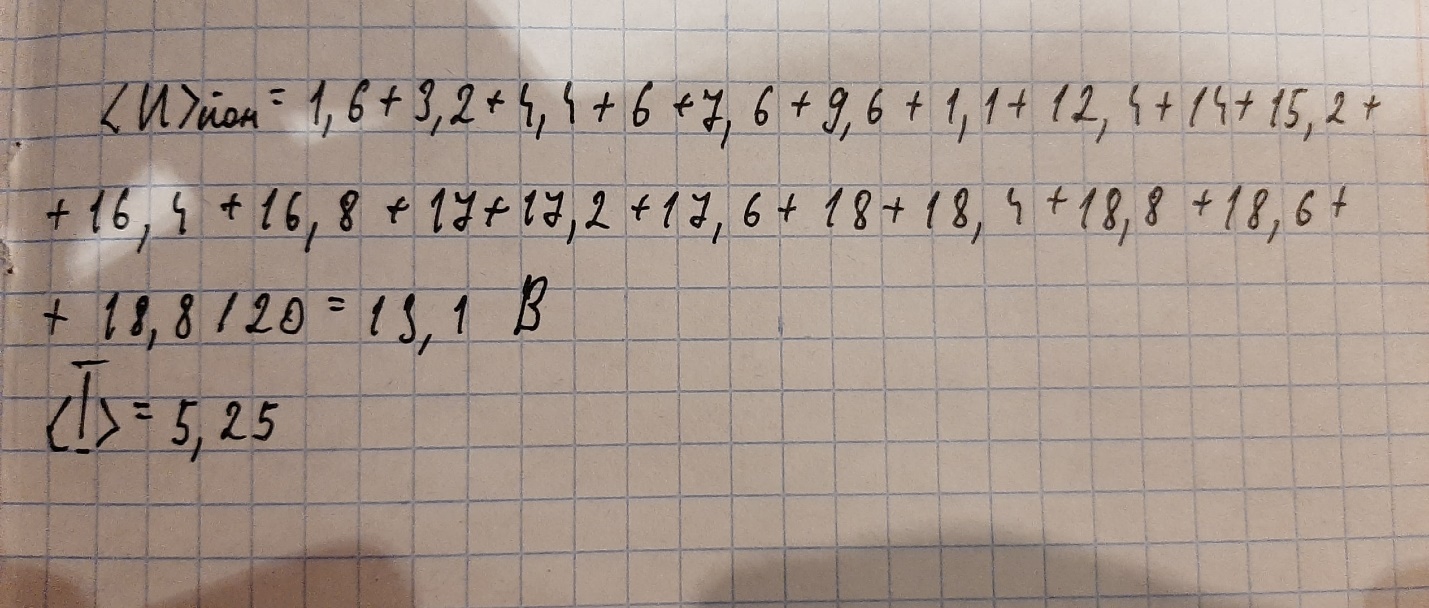 <U>йон = 1,6 + 3,2 + 4,4 + 6 + 7,6 + 9,6 + 1,1 + 12,4 + 14 + 15,2 +
+ 16,4 + 16,8 + 17 + 17,2 + 17,6 + 18 + 18,4 + 18,8 + 18,6 +
+ 18,8 / 20 = 13,1 В
<I> = 5,25